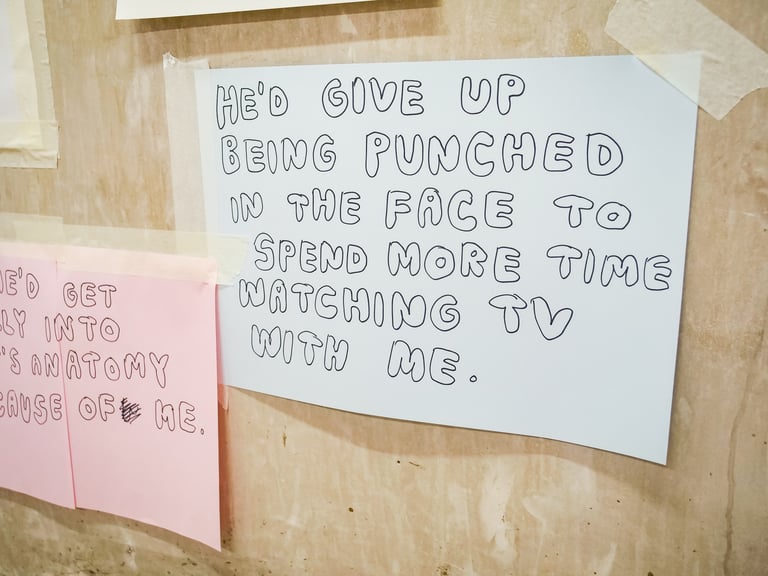 HE'D GIVE UP
BEING PUNCHED
IN THE FACE TO
SPEND MORE TIME
WATCHING TV
WITH ME.
GET
INTO
ANATOMY
OF ME.